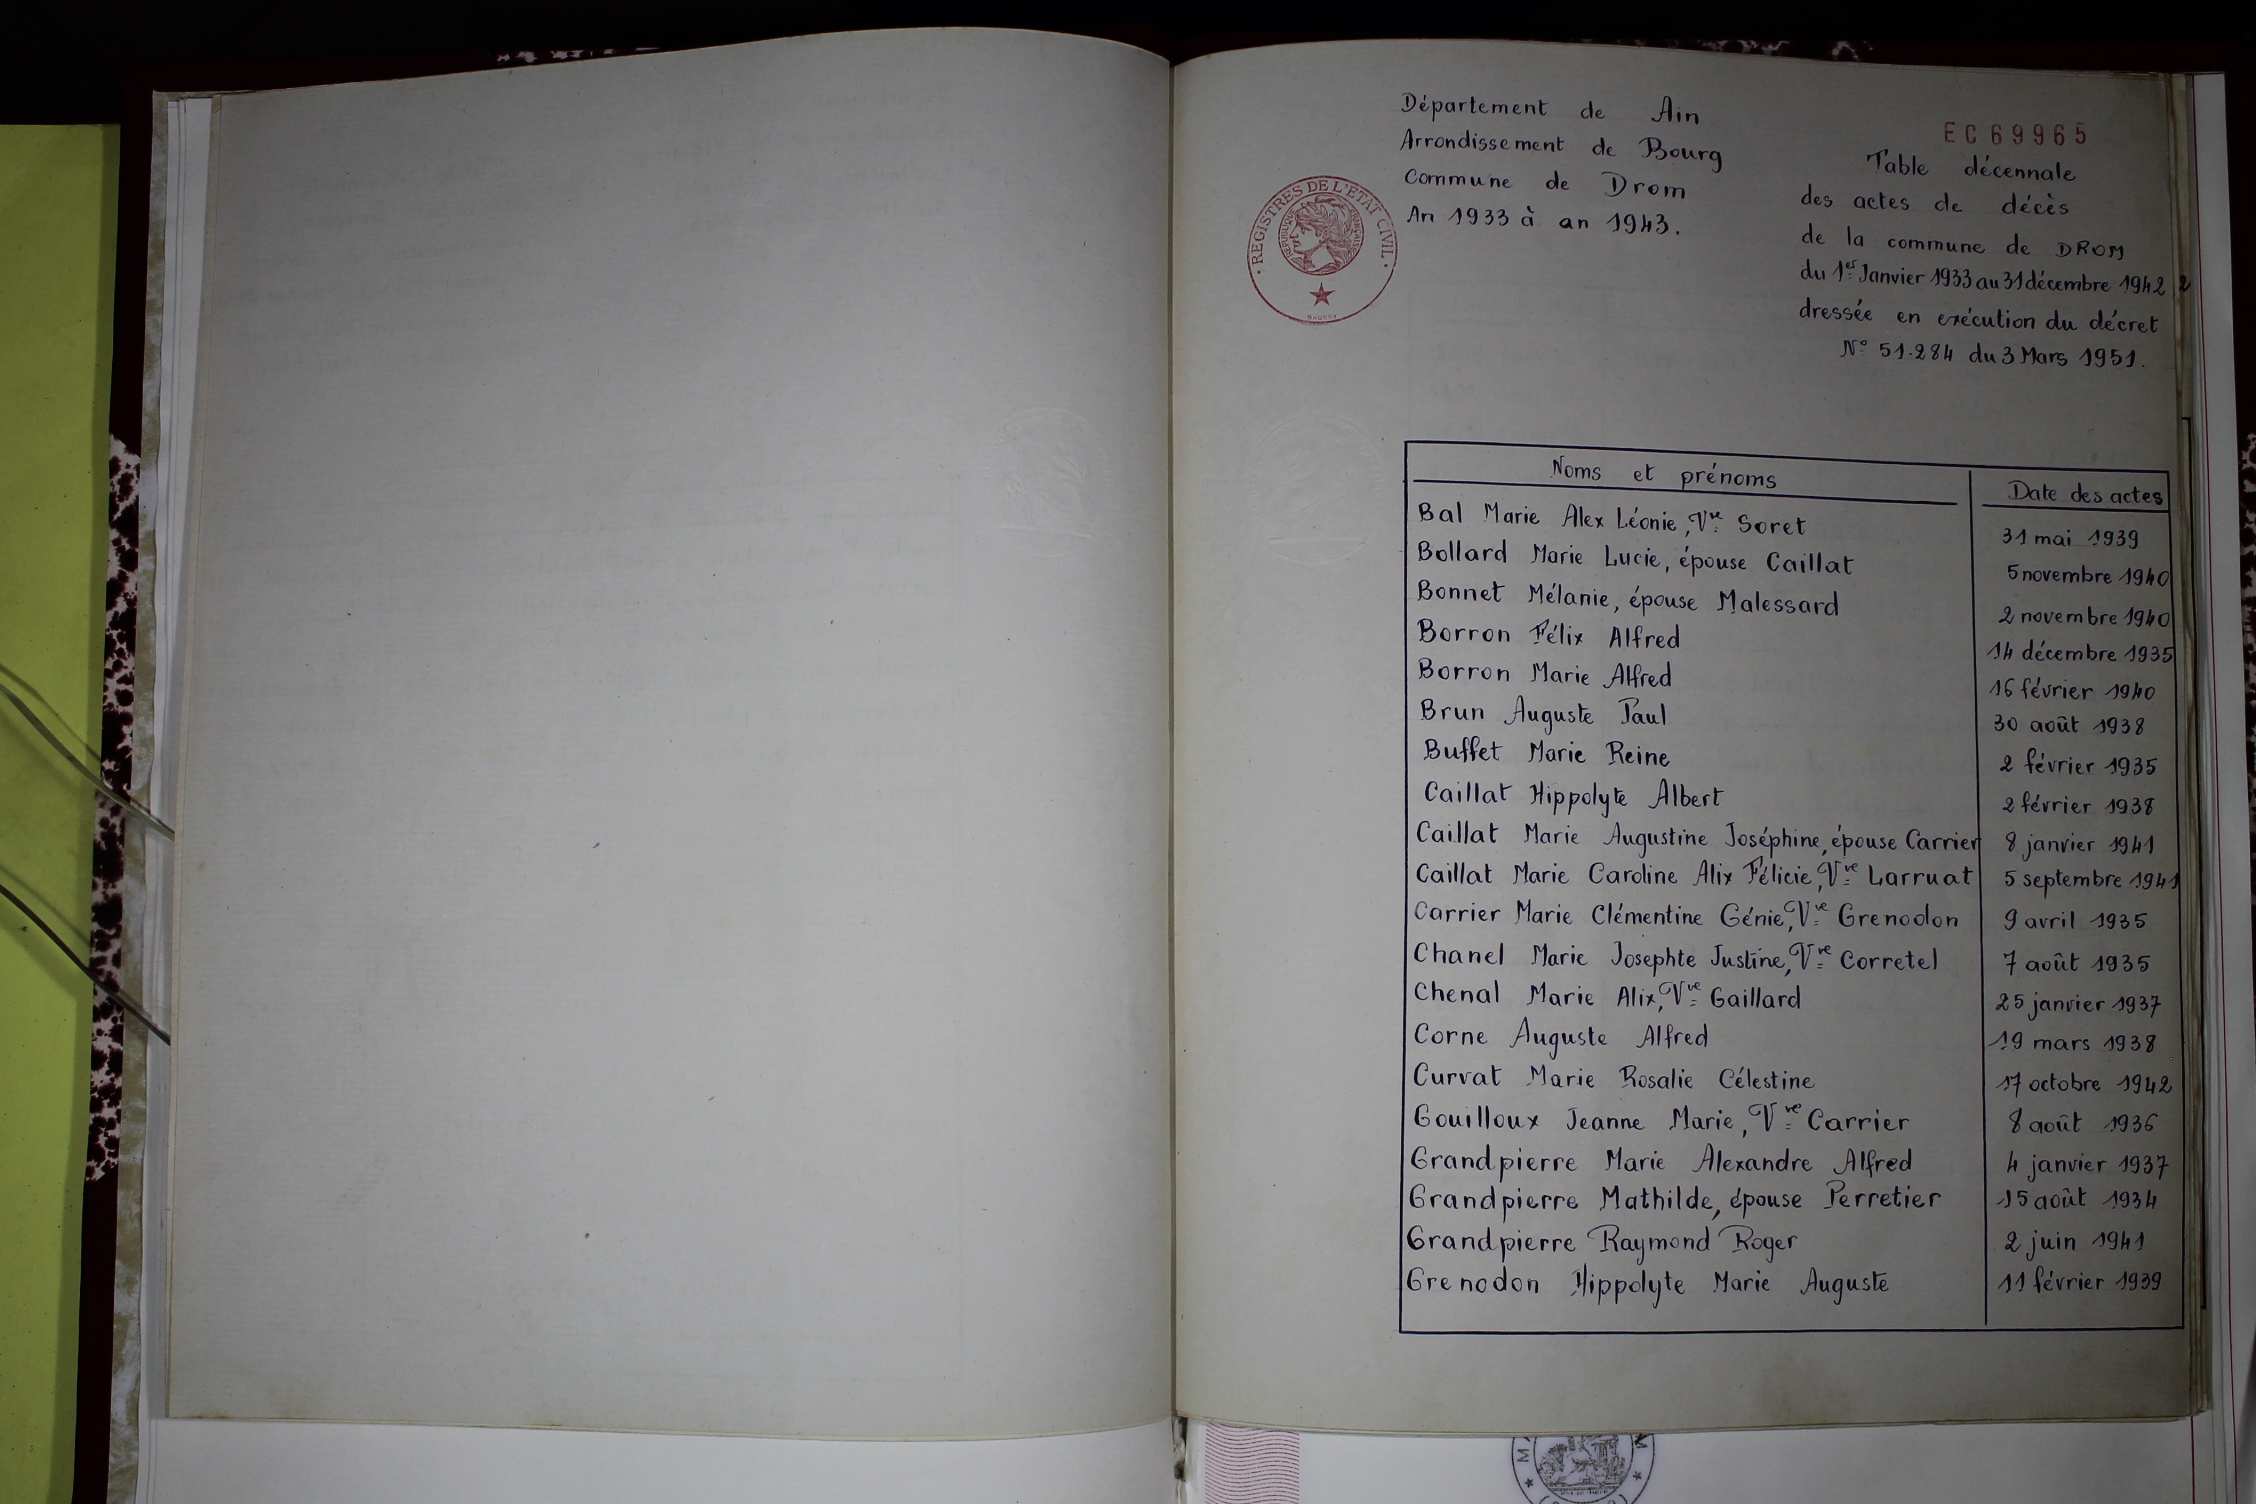 Département de Ain
Arrondissement de Bourg
Commune de Drom
An 1933 à an 1943.
REGISTRES DE L'ETAT CIVIL
EC 69965
Table décennale
des actes de décès
de la commune de DROM
du 1er Janvier 1933 au 31 décembre 1942
dressée en exécution du décret
N° 51.284 du 3 Mars 1951.
Noms et prénoms Date des actes
Bal Marie Alex Léonie, Vve Soret 31 mai 1939
Bollard Marie Lucie, épouse Caillat 5 novembre 1940
Bonnet Mélanie, épouse Malessard 2 novembre 1940
Borron Félix Alfred 14 décembre 1935
Borron Marie Alfred 16 février 1940
Brun Auguste Paul 30 août 1938
Buffet Marie Reine 2 février 1935
Caillat Hippolyte Albert 2 février 1938
Caillat Marie Augustine Joséphine, épouse Carrier 8 janvier 1941
Caillat Marie Caroline Alix Félicie, Vve Larruat 5 septembre 1941
Carrier Marie Clémentine Génie, Vve Grenodon 9 avril 1935
Chanel Marie Josephte Justine, Vve Corretel 7 août 1935
Chenal Marie Alix, Vve Gaillard 25 janvier 1937
Corne Auguste Alfred 19 mars 1938
Curvat Marie Rosalie Célestine 17 octobre 1942
Gouilloux Jeanne Marie, Vve Carrier 8 août 1936
Grandpierre Marie Alexandre Alfred 4 janvier 1937
Grandpierre Mathilde, épouse Perretier 15 août 1934
Grandpierre Raymond Roger 2 juin 1941
Grenodon Hippolyte Marie Auguste 11 février 1939